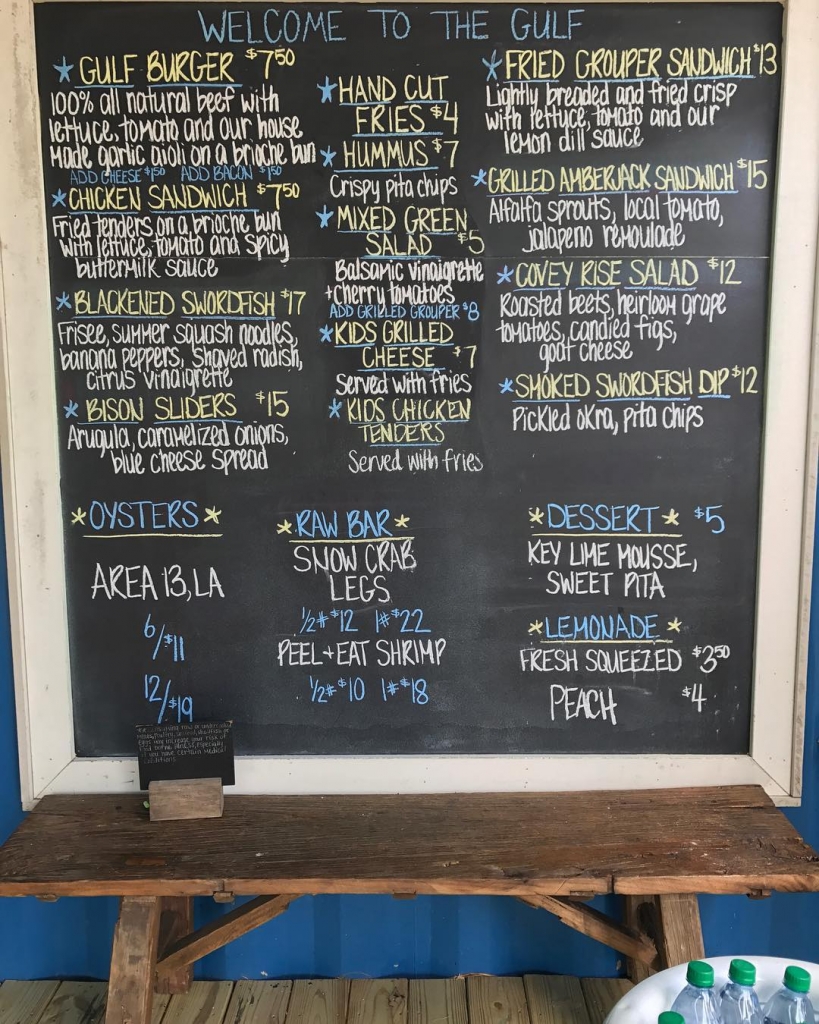 WELCOME TO THE GULF
GULF BURGER $7.50
100% all natural beef with
lettuce, tomato and our house
Made garlic aioli on a brioche bun
ADD CHEESE $1.50 ADD BACON $1.50
CHICKEN SANDWICH $7.50
Fried tenders on a brioche bun
with lettuce, tomato and spicy
buttermilk sauce
BLACKENED SWORDFISH $17
Frisee, summer squash noodles,
banana peppers, shaved radish,
citrus vinaigrette
BISON SLIDERS $15
Arugula, caramelized onions,
blue cheese spread
HAND CUT
FRIES $4
HUMMUS $7
Crispy pita chips
MIXED GREEN
SALAD $5
Balsamic vinaigrette
+ cherry tomatoes
ADD GRILLED GROUPER $8
KIDS GRILLED
CHEESE $7
Served with fries
KIDS CHICKEN
TENDERS
Served with fries
FRIED GROUPER SANDWICH $13
Lightly breaded and fried crisp
with lettuce, tomato and our
lemon dill sauce
GRILLED AMBERJACK SANDWICH $15
Alfalfa sprouts, local tomato,
jalapeno remoulade
COVEY RISE SALAD $12
Roasted beets, heirloom grape
tomatoes, candied figs,
goat cheese
SMOKED SWORDFISH DIP $12
Pickled okra, pita chips
OYSTERS
AREA 13, LA
6/$11
12/$19
RAW BAR
SNOW CRAB
LEGS
1/2# $12 1# $22
PEEL + EAT SHRIMP
1/2# $10 1# $18
DESSERT $5
KEY LIME MOUSSE,
SWEET PITA
LEMONADE
FRESH SQUEEZED $3.50
PEACH $4
may increase your risk of
especially
if you have certain medical
conditions